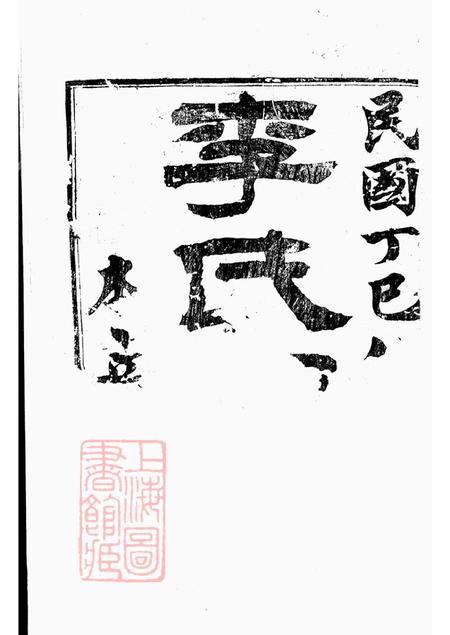 民國丁巳
李氏
木立
上海圖
書館藏